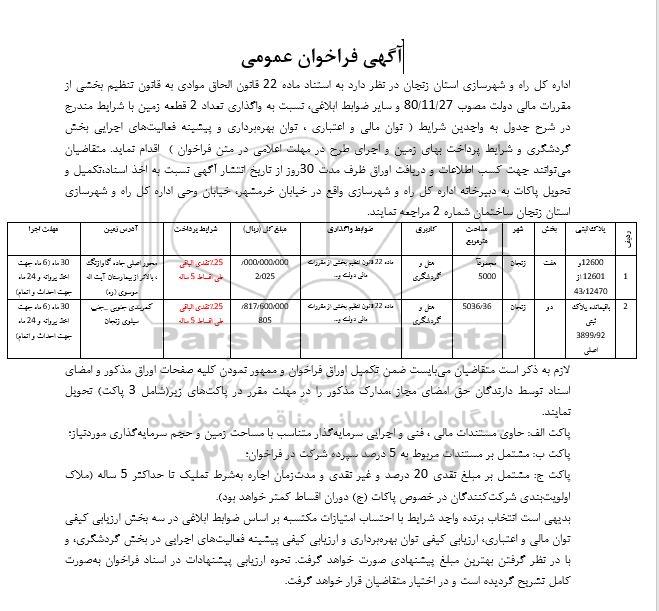 آگهی فراخوان عمومی
اداره کل راه و شهرسازی استان زنجان در نظر دارد به استناد ماده 22 قانون الحاق موادی به قانون تنظیم بخشی از
مقررات مالی دولت مصوب 80/11/27 و سایر ضوابط ابلاغی، نسبت به واگذاری تعداد 2 قطعه زمین با شرایط مندرج
در شرح جدول به واجدین شرایط ( توان مالی و اعتباری ، توان بهره‌برداری و پیشینه فعالیت‌های اجرایی بخش
گردشگری و شرایط پرداخت بهای زمین و اجرای طرح در مهلت اعلامی در متن فراخوان ) اقدام نماید. متقاضیان
می‌توانند جهت کسب اطلاعات و دریافت اوراق ظرف مدت 30روز از تاریخ انتشار آگهی نسبت به اخذ اسناد،تکمیل و
تحویل پاکات به دبیرخانه اداره کل راه و شهرسازی واقع در خیابان خرمشهر، خیابان وحی اداره کل راه و شهرسازی
استان زنجان ساختمان شماره 2 مراجعه نمایند.
ردیف پلاک ثبتی بخش شهر مساحت مترمربع کاربری ضوابط واگذاری مبلغ کل (ریال) شرایط پرداخت آدرس زمین مهلت اجرا
12600و هفت زنجان مجموعاً هتل و ماده 22 قانون تنظیم بخشی از مقررات 000/000/000/ 25٪نقدی الباقی محور اصلی جاده گاوازنگ 30 ماه (6 ماه جهت
1 12601 از 5000 گردشگری مالی دولت و... 2/025 طی اقساط 5 ساله ، بالاتر از بیمارستان آیت اله اخذ پروانه و 24 ماه
43/12470 موسوی (ره) جهت احداث و اتمام)
2 باقیمانده پلاک دو زنجان 5036/36 هتل و ماده 22 قانون تنظیم بخشی از مقررات 817/600/000/ 25٪نقدی الباقی کمربندی جنوبی _جنب 30 ماه (6 ماه جهت
ثبتی گردشگری مالی دولت و... 805 طی اقساط 5 ساله سیلوی زنجان اخذ پروانه و 24 ماه
3899/92 جهت احداث و اتمام)
اصلی
لازم به ذکر است متقاضیان می‌بایست ضمن تکمیل اوراق فراخوان و ممهور نمودن کلیه صفحات اوراق مذکور و امضای
اسناد توسط دارندگان حق امضای مجاز ،مدارک مذکور را در مهلت مقرر در پاکت‌های زیر(شامل 3 پاکت) تحویل
نمایند.
پاکت الف: حاوی مستندات مالی ، فنی و اجرایی سرمایه‌گذار متناسب با مساحت زمین و حجم سرمایه‌گذاری موردنیاز؛
پاکت ب: مشتمل بر مستندات مربوط به 5 درصد سپرده شرکت در فراخوان؛
پاکت ج: مشتمل بر مبلغ نقدی 20 درصد و غیر نقدی و مدت‌زمان اجاره به‌شرط تملیک تا حداکثر 5 ساله (ملاک
اولویت‌بندی شرکت‌کنندگان در خصوص پاکات (ج) دوران اقساط کمتر خواهد بود).
بدیهی است انتخاب برنده واجد شرایط با احتساب امتیازات مکتسبه بر اساس ضوابط ابلاغی در سه بخش ارزیابی کیفی
توان مالی و اعتباری، ارزیابی کیفی توان بهره‌برداری و ارزیابی کیفی پیشینه فعالیت‌های اجرایی در بخش گردشگری، و
با در نظر گرفتن بهترین مبلغ پیشنهادی صورت خواهد گرفت. نحوه ارزیابی پیشنهادات در اسناد فراخوان به‌صورت
کامل تشریح گردیده است و در اختیار متقاضیان قرار خواهد گرفت.
ParsNamadData
پایگاه اطلاع رسانی مناقصه و مزایده